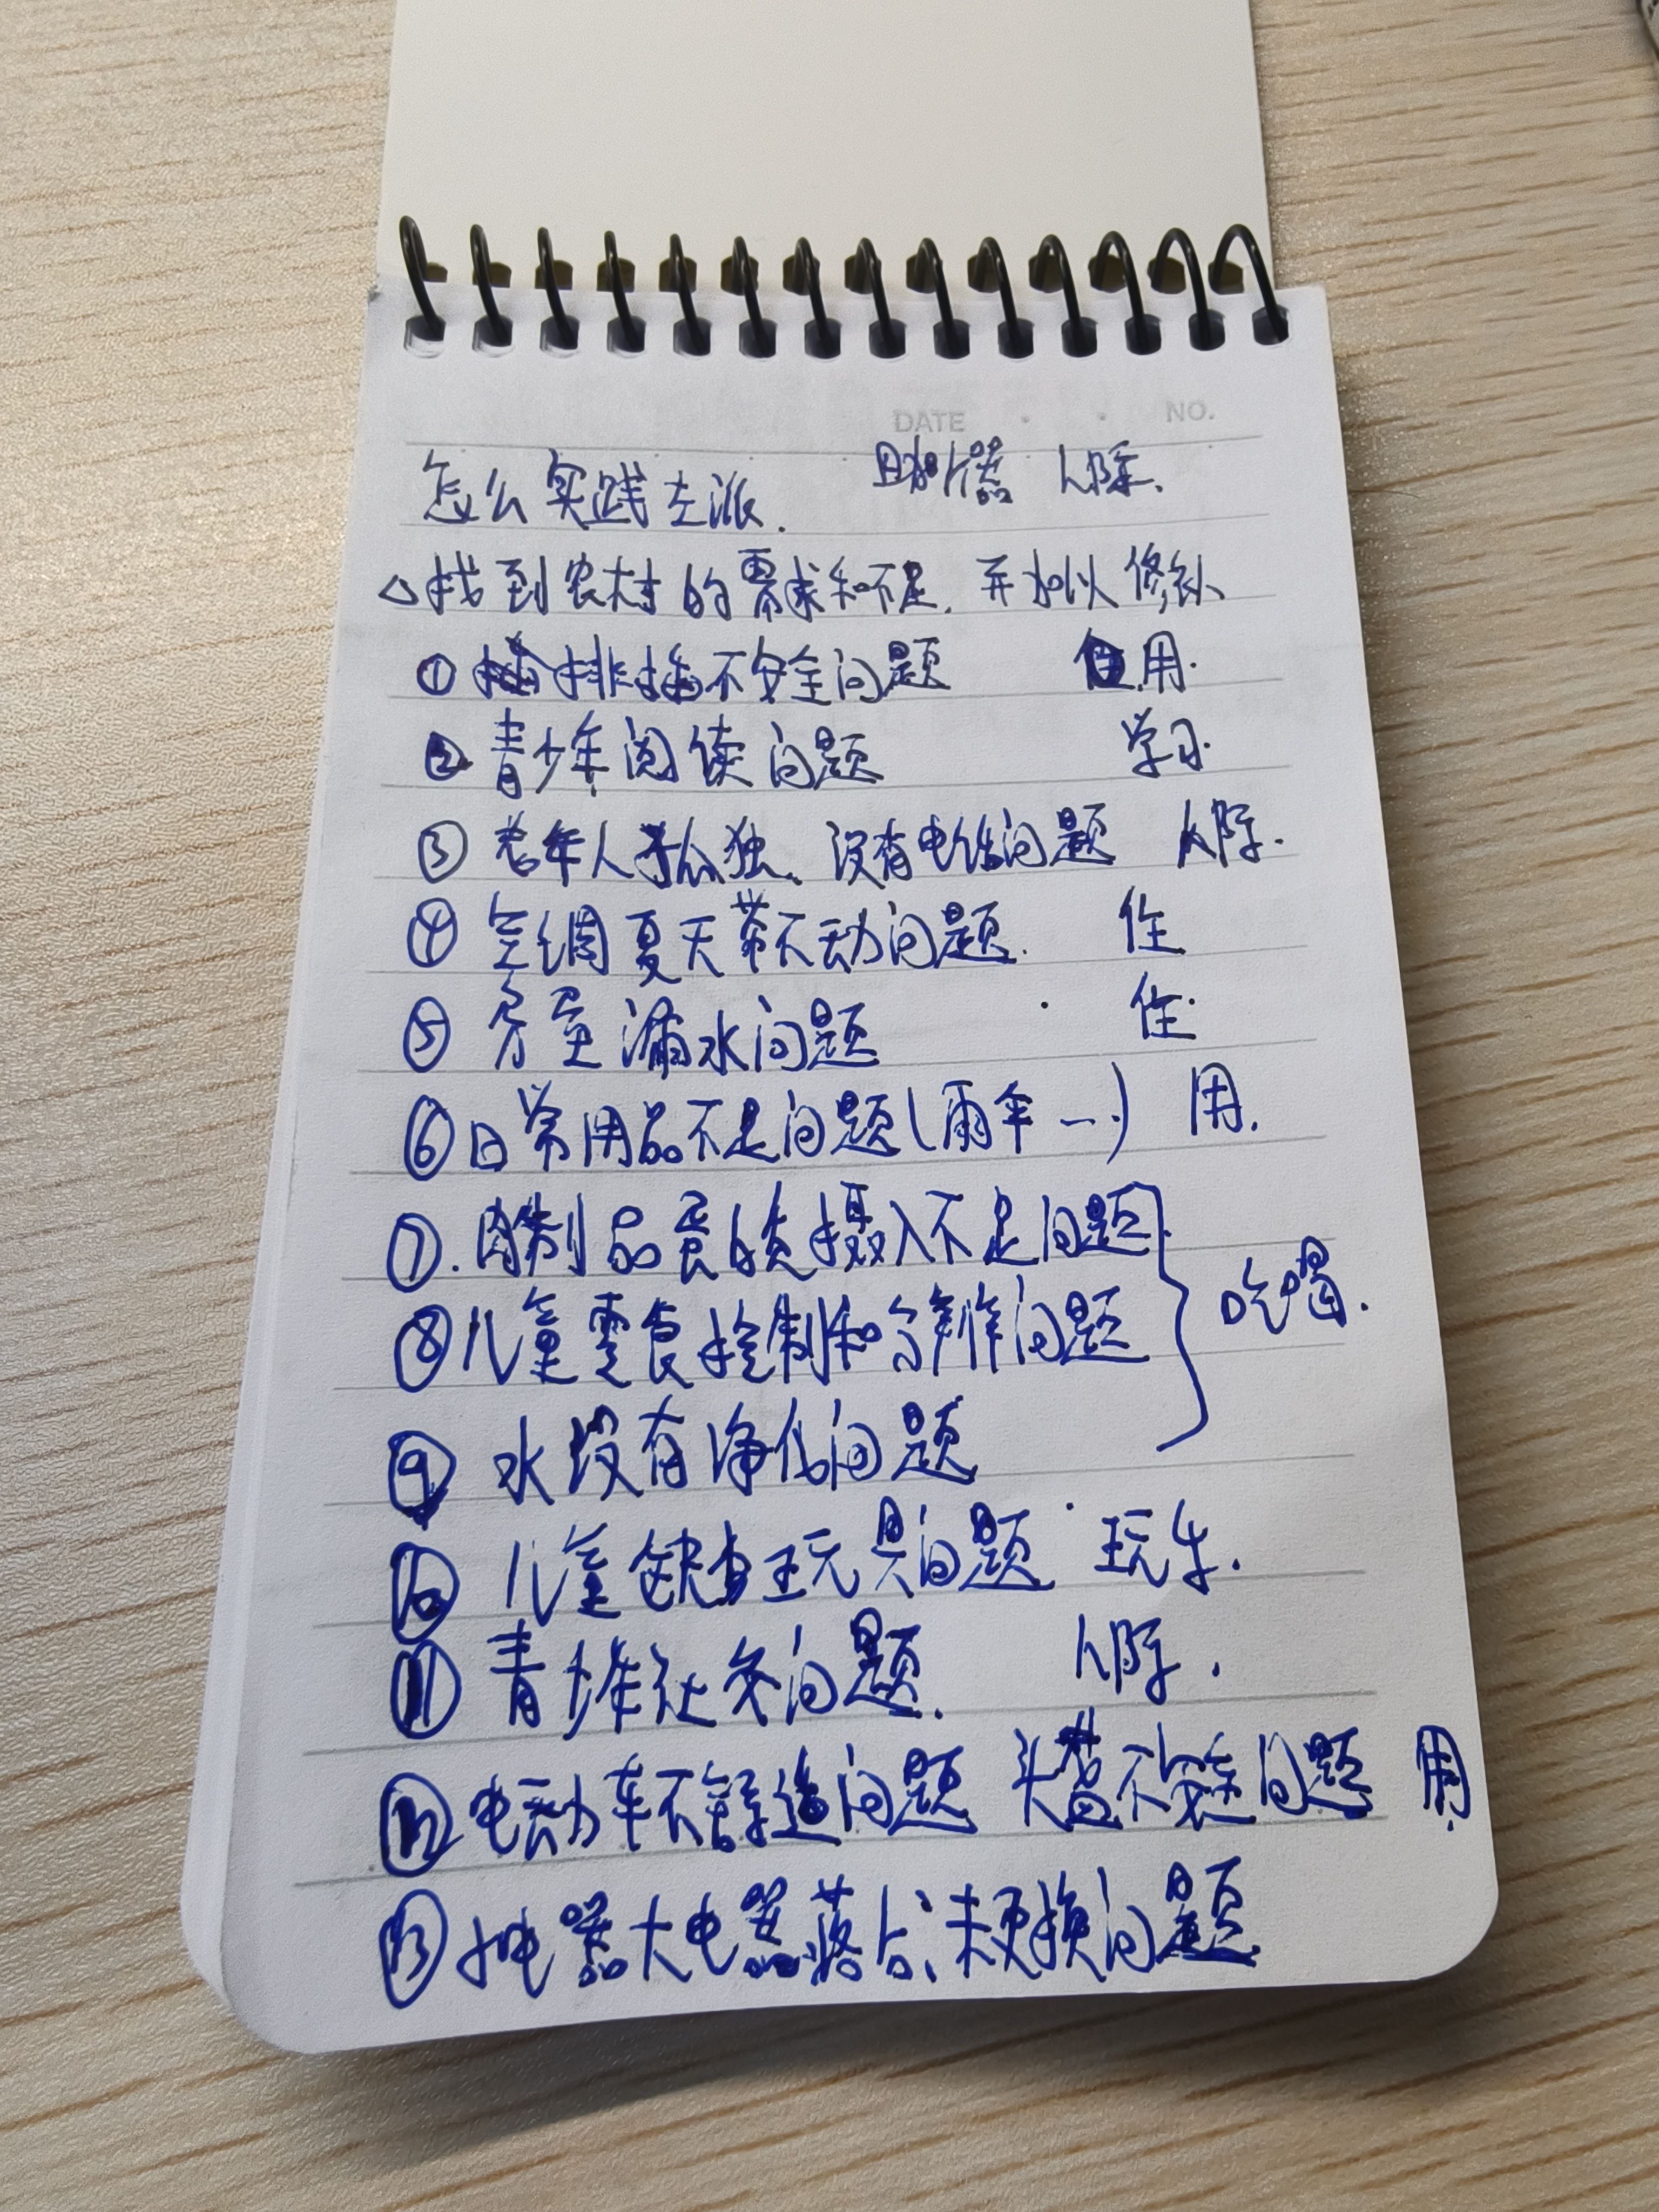 DATE . . NO.
怎么实践左派. 助听器 人际.
△找到农村的需求和不足, 并加以修补
① 排插不安全问题 用.
② 青少年阅读问题 学习.
③ 老年人孤独、没有电话问题 人际.
④ 空调夏天带不动问题. 住
⑤ 房屋漏水问题 住.
⑥ 日常用品不足问题(雨伞…) 用.
⑦. 肉制品蛋白质摄入不足问题
⑧ 儿童零食控制和分辨问题 吃喝.
⑨ 水没有净化问题
⑩ 儿童缺乏玩具问题 玩乐.
⑪ 青少年社交问题. 人际.
⑫ 电动车不合适问题 头盔不安全问题 用.
⑬ 电器大电器落后、未更换问题